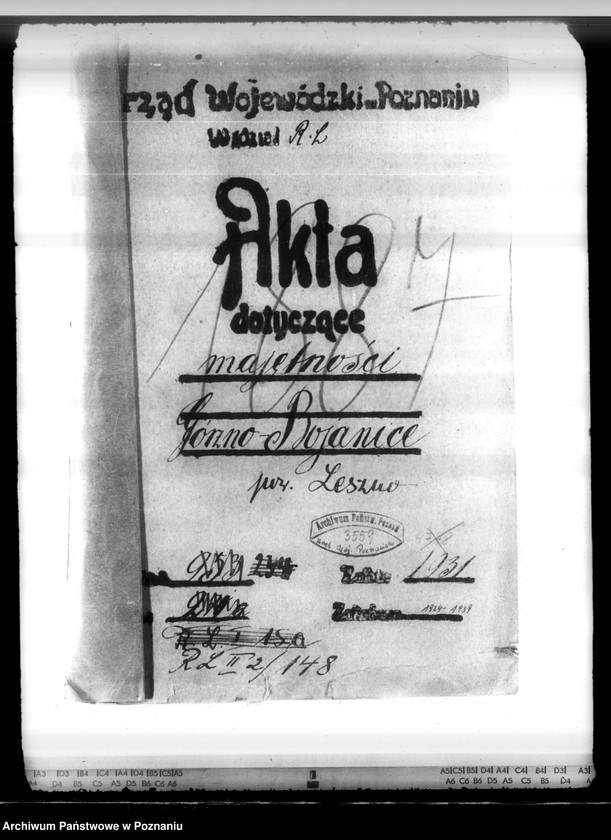 rząd Wojewódzki w Poznaniu
Wydział R. L
Akta
1887
dotyczące
majętności
Górzno-Bojanice
pow. Leszno
Archiwum Państw. Poznań
3559
Urz. Woj. Poznański
1931
1924-1939
R L I 15a
RL II 2/148
A3 D3 B4 C4 A4 D4 B5 C5 A5
A4 D4 B5 C5 A5 D5 B6 C6 A6
A5 C5 B5 D4 A4 C4 B4 D3 A3
A6 C6 B6 D5 A5 C5 B5 D4 A4
Archiwum Państwowe w Poznaniu